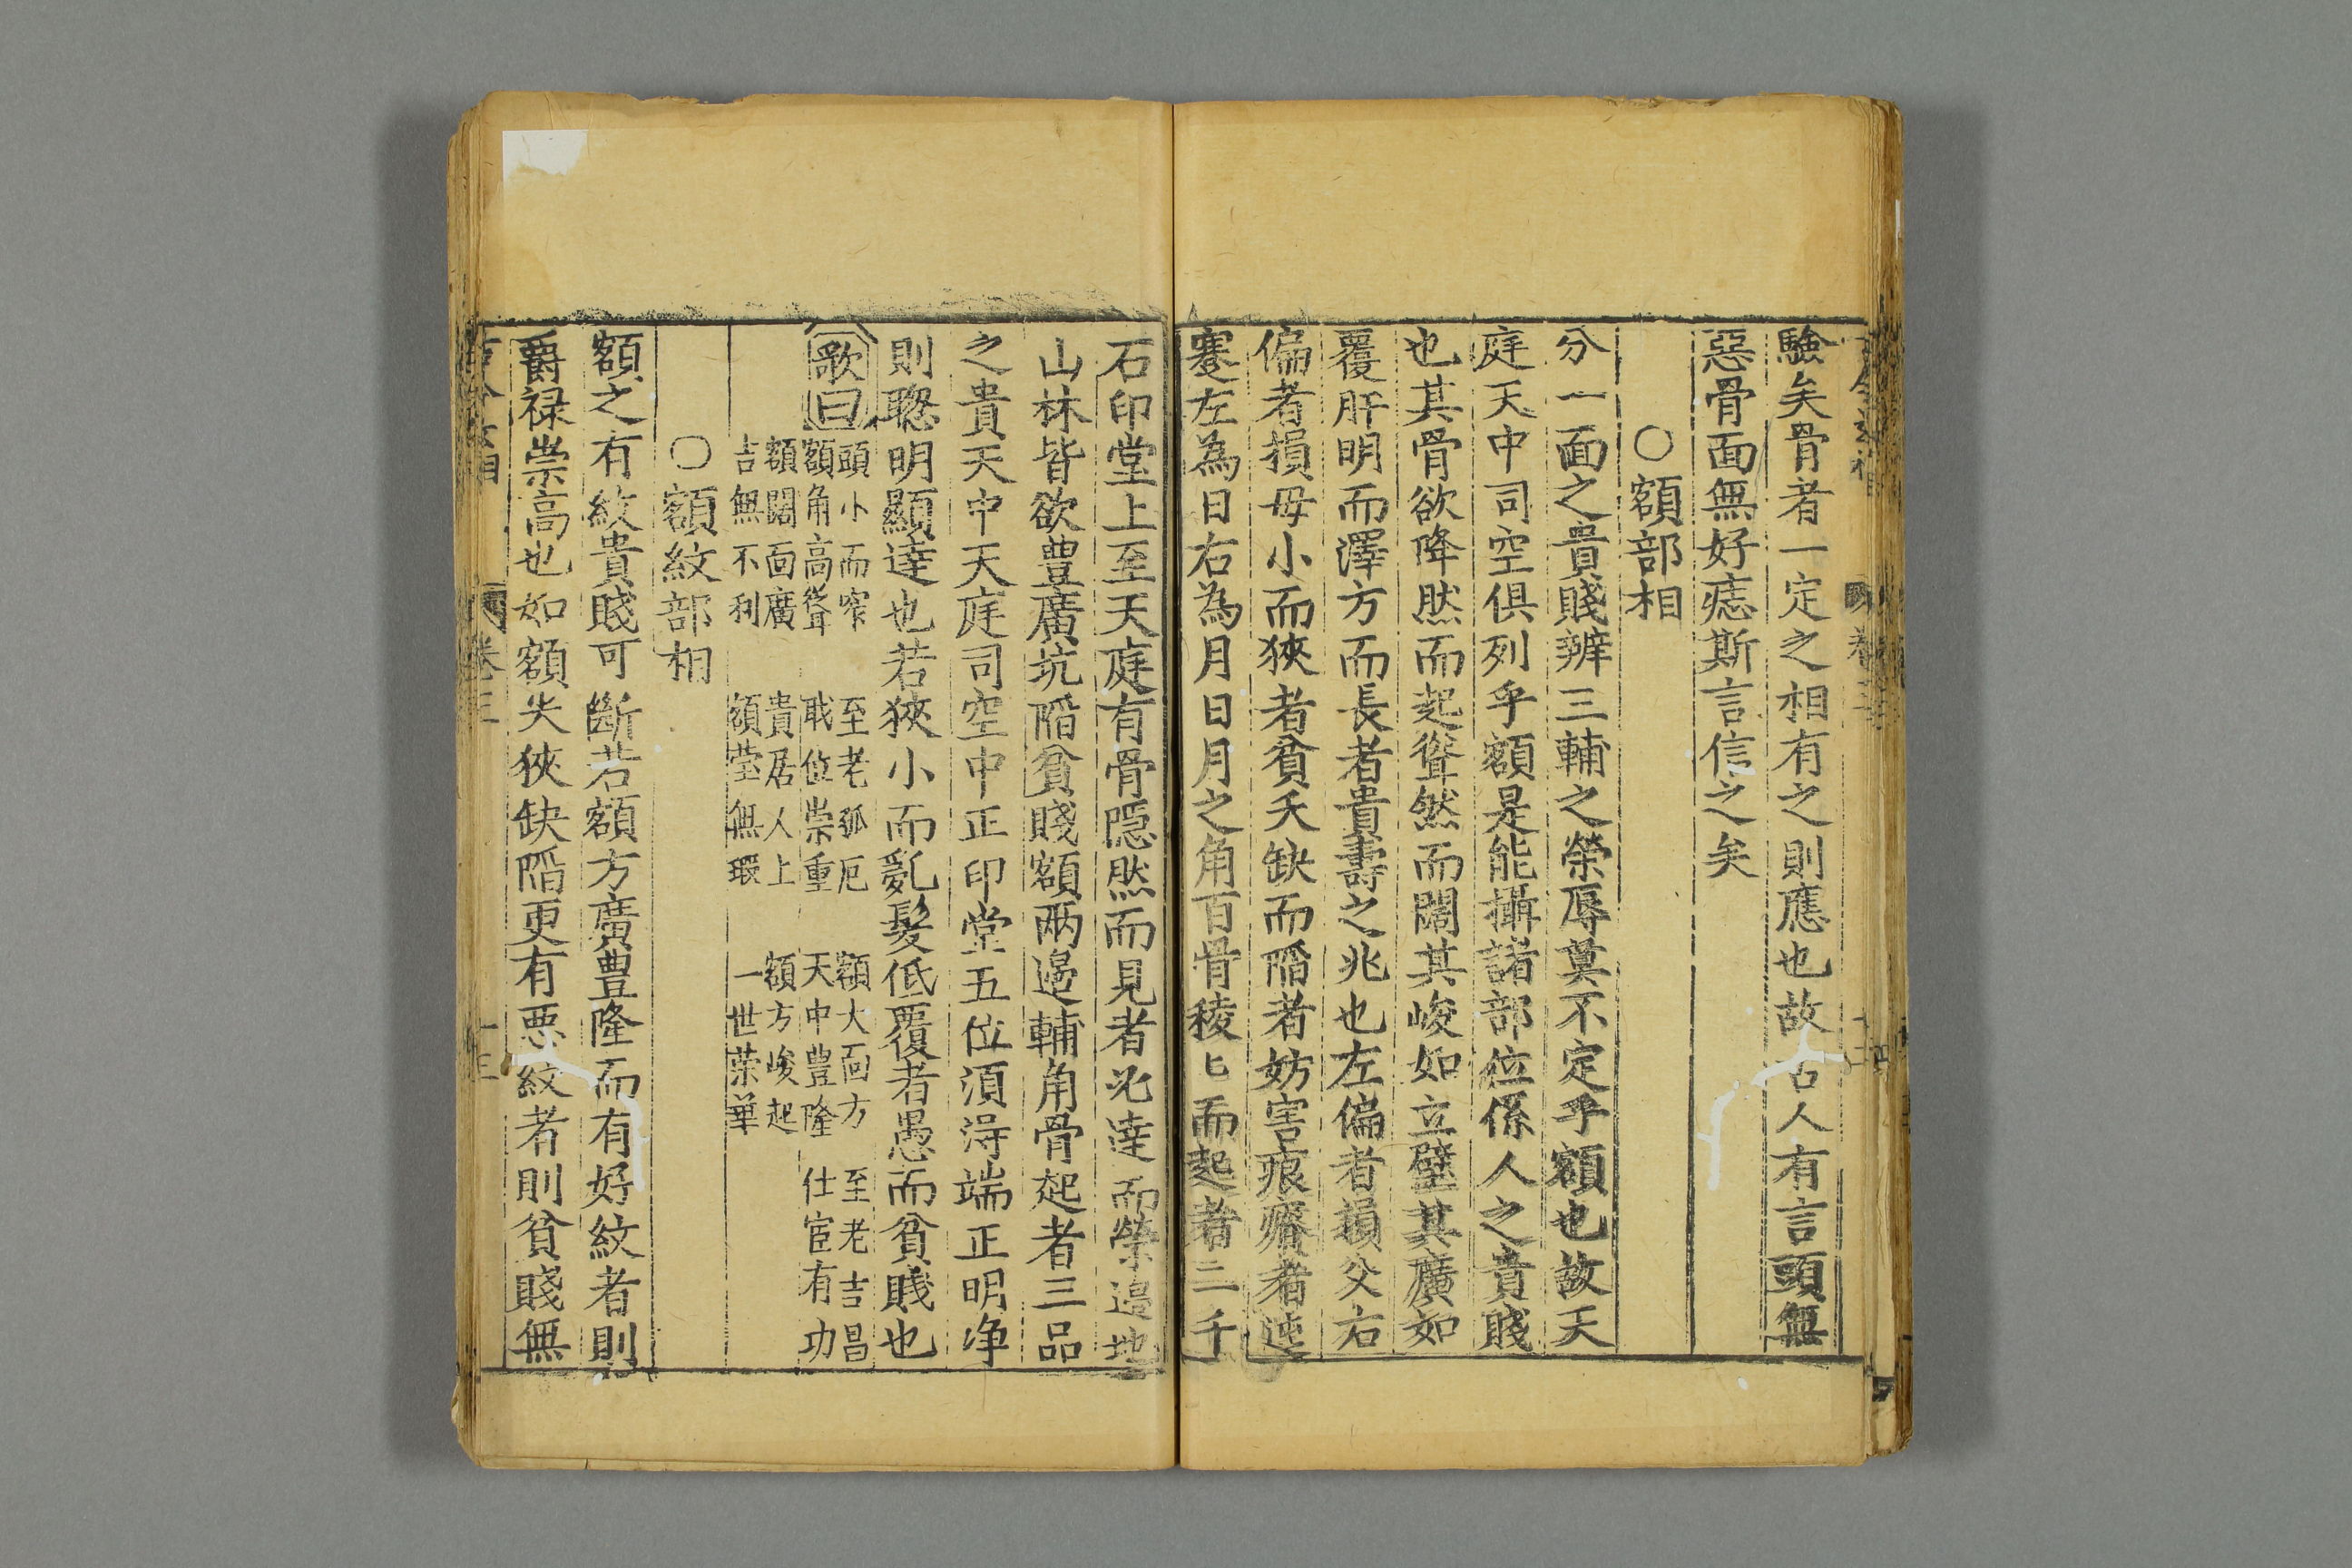 驗矣骨者一定之相有之則應也故古人有言頭無
惡骨面無好痣斯言信之矣
○額部相
分一面之貴賤辨三輔之榮辱莫不定乎額也故天
庭天中司空俱列乎額是能攝諸部位係人之貴賤
也其骨欲降然而起聳然而闊其峻如立壁其廣如
覆肝明而澤方而長者貴壽之兆也左偏者損父右
偏者損母小而狹者貧夭缺而陷者妨害痕瘠者迍
蹇左為日右為月日月之角百骨稜匕而起者二千
石印堂上至天庭有骨隱然而見者必達而榮邉地
山林皆欲豊廣坑陷貧賤額两邉輔角骨起者三品
之貴天中天庭司空中正印堂五位湏淂端正明净
則聦明顯達也若狹小而亂髮低覆者愚而貧賤也
歌曰
頭小而窄 至老孤厄 額大面方 至老吉昌
額角高聳 戢位崇重 天中豊隆 仕宦有功
額闊面廣 貴居人上 額方峻起
吉無不利 額莹無瑕 一世荣華
○額紋部相
額之有紋貴賤可斷若額方廣豊隆而有好紋者則
爵禄崇高也如額尖狹缺陷更有悪紋者則貧賤無
卷三